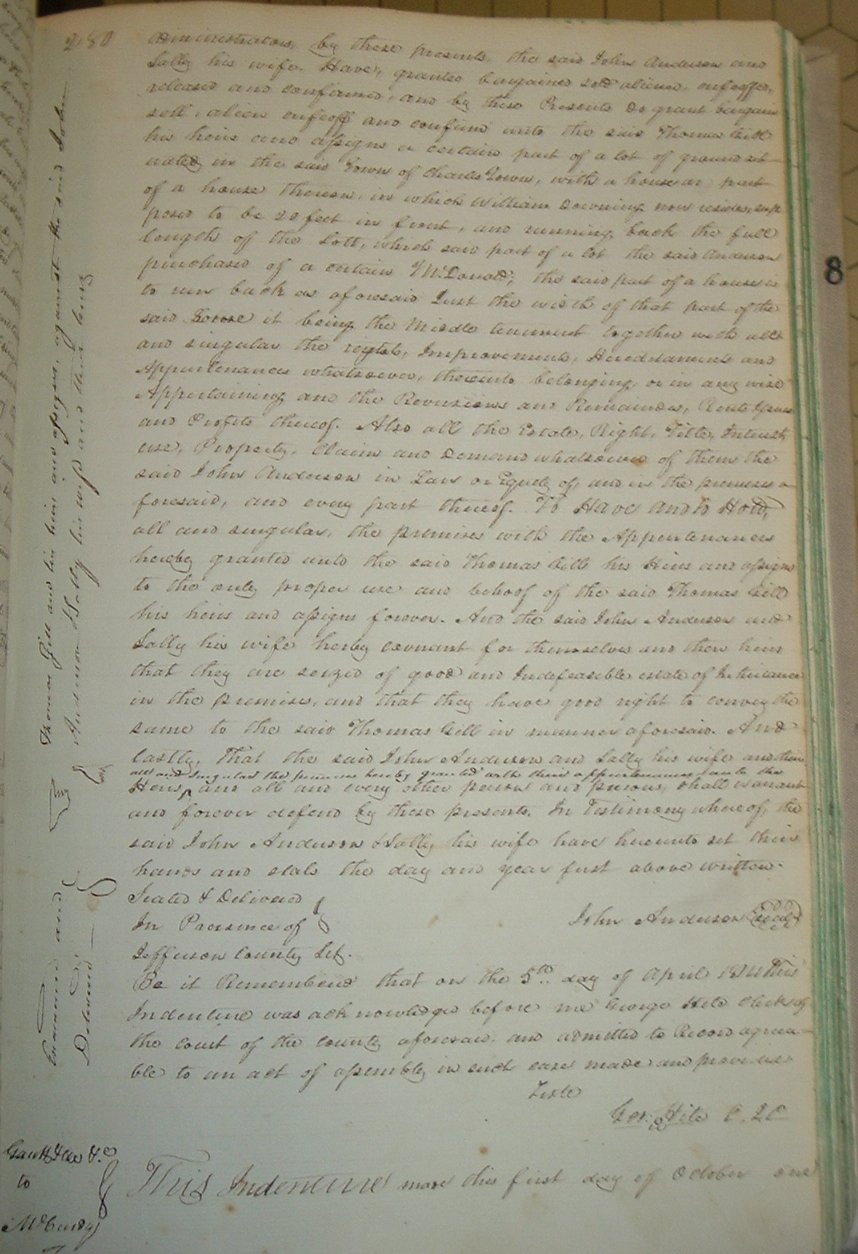 280
administrators, by these presents, the said John Anderson and
Sally his wife. Have, granted bargained sold aliened enfeoffed,
released and confirmed, and by these Presents Do grant bargain
sell, alien enfeoff and confirm unto the said Thomas Gill
his heirs and assigns a certain part of a lot of ground sit-
uated in the said Town of Charles Town, with a house or part
of a house thereon, in which William Downing now resides, sup-
posed to be 20 feet in front, and running back the full
length of the Lott, which said part of a lot the said Anderson
purchased of a certain McDonald; the said part of a house is
to run back as aforesaid Just the width of that part of the
said House it being the Middle tenement together with all
and singular the rights, Improvements, Hereditaments and
Appurtenances whatsoever, thereunto belonging, or in any wise
Appertaining and the Reversions and Remainders, Rents Issues
and Profits thereof. Also all the Estate, Right, Title, Interest,
use, Property, Claim and Demand whatsoever of them the
said John Anderson in Law or Equity of, and in the premises a-
foresaid, and every part thereof. To Have and to Hold,
all and singular, the premises with the Appurtenances
hereby granted unto the said Thomas Gill his Heirs and assigns
to the only proper use and behoof of the said Thomas Gill
his heirs and assigns forever. And the said John Anderson and
Sally his wife hereby covenant for themselves and their heirs
that they are seized of good and Indefeasible estate of Inheritance
in the premises, and that they have good right to convey the
same to the said Thomas Gill in manner aforesaid. And
lastly, That the said John Anderson and Sally his wife and their
all and singular the premises hereby granted with their appurtenances unto the
Heirs, and all and every other person and persons, shall warrant
and forever defend by these presents. In Testimony whereof, the
said John Anderson & Sally his wife have hereunto set their
hands and seals the day and year first above written.
Sealed & Delivered
In Presence of
John Anderson
Jefferson County Sct.
Be it Remembered that on the 5th day of April This
Indenture was acknowledged before me George Hite Clerk of
the court of the county aforesaid, and admitted to Record agreea-
ble to an act of assembly in such case made and provided
Teste
Geo: Hite
Thomas Gill and his heirs and assigns, against the said John
Anderson & Sally his wife and their heirs
Examined and
Delivered
to
McCurdy
This Indenture made this first day of October one
8